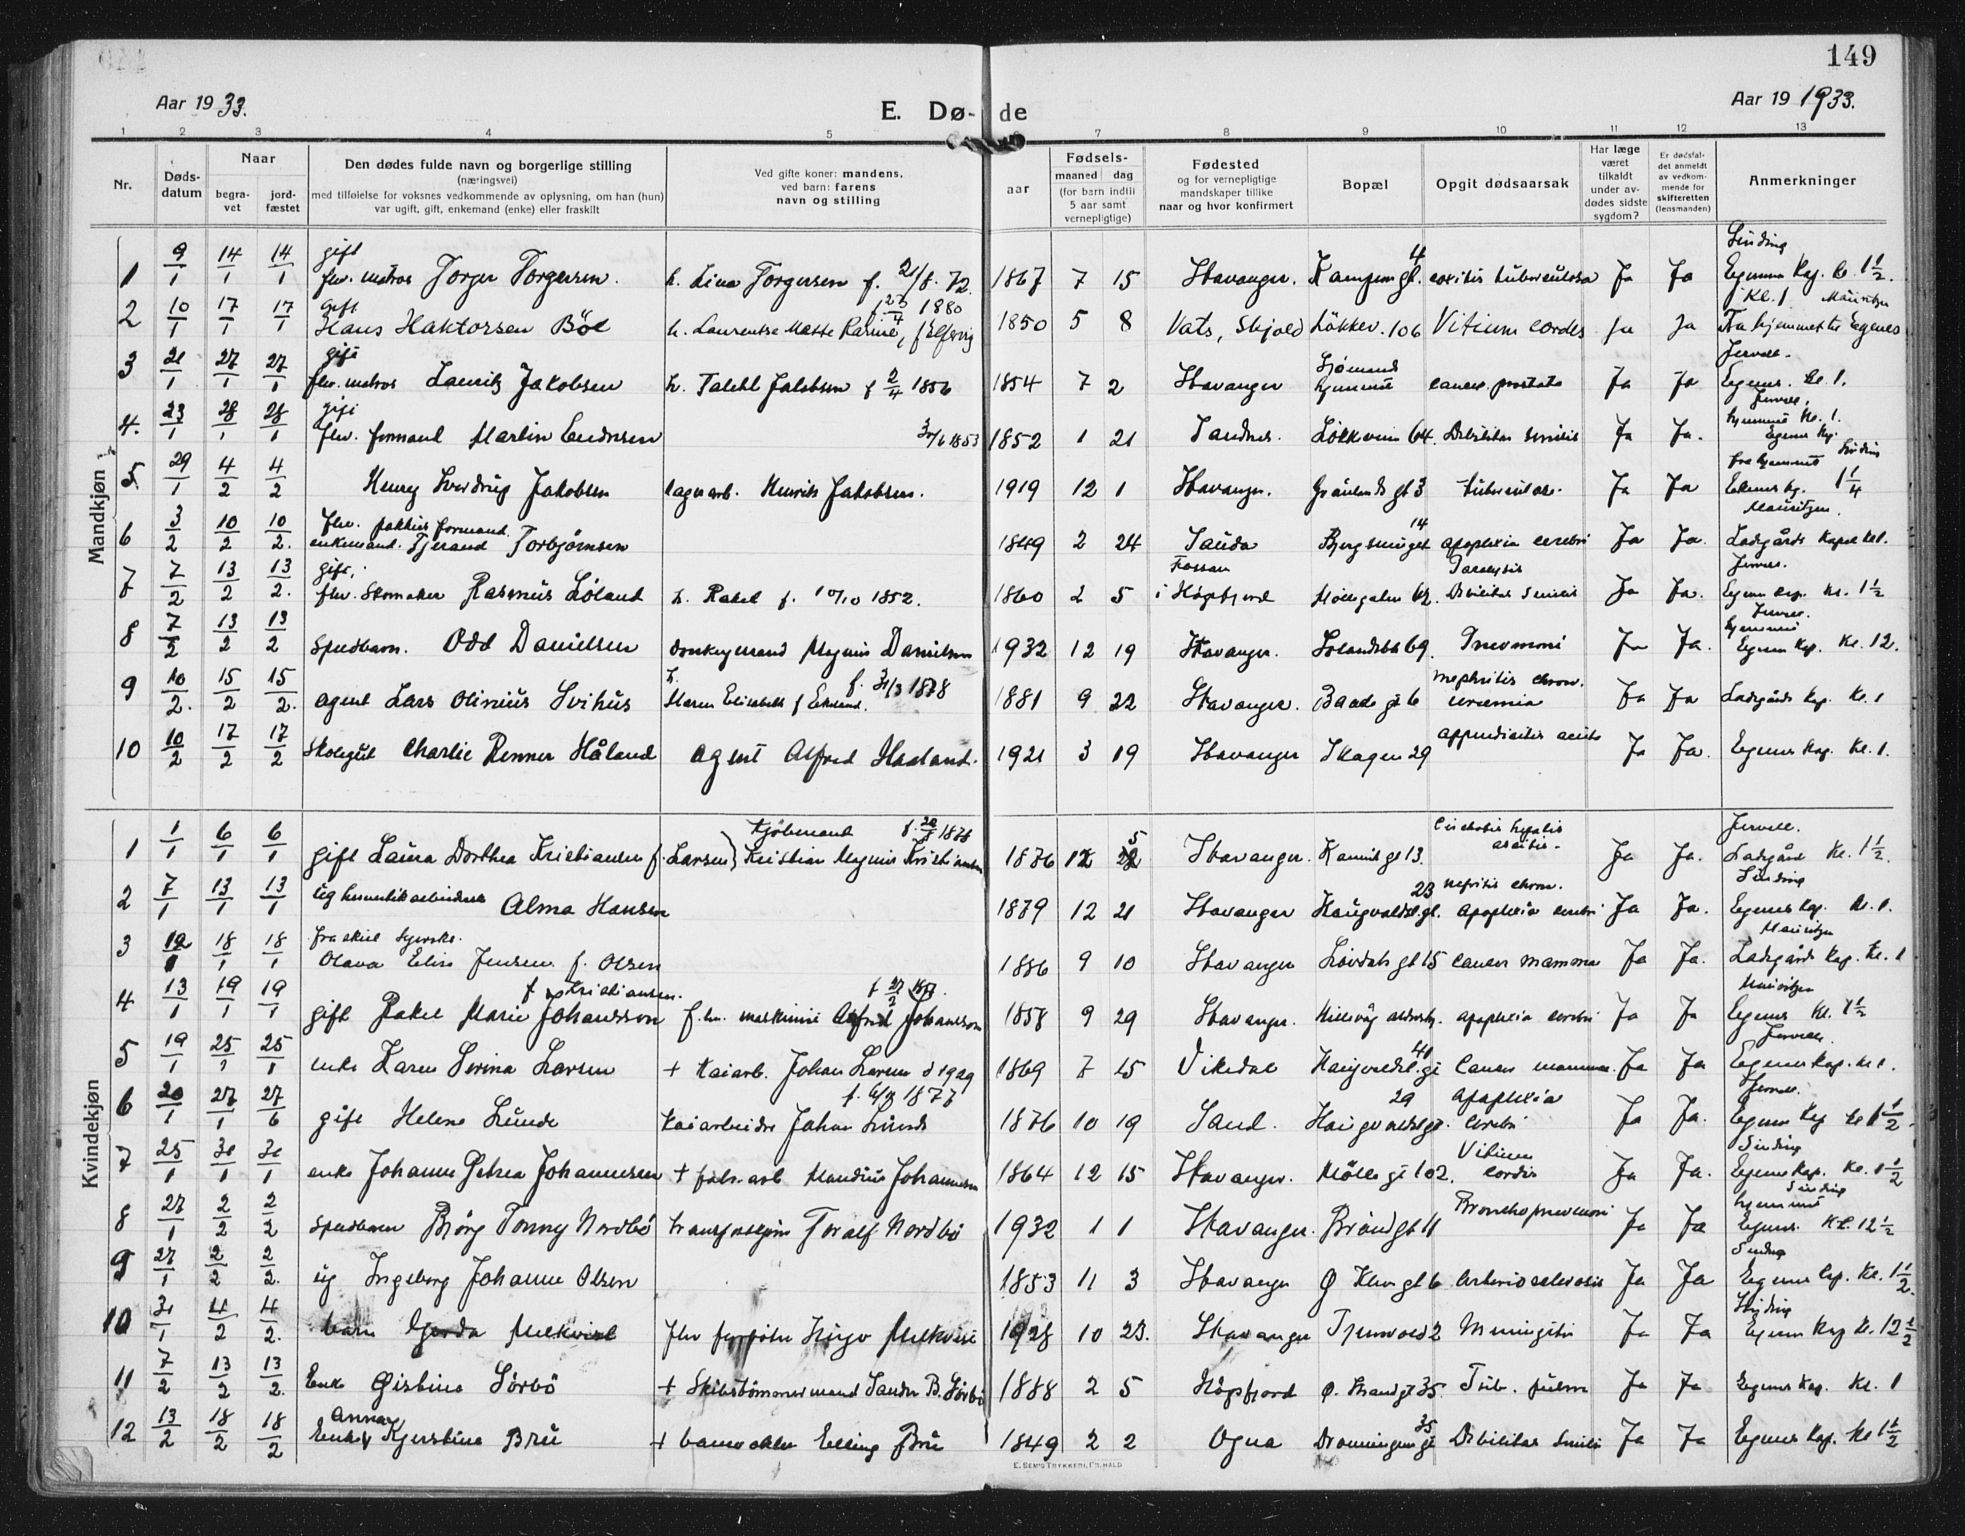 149
Aar 1933.
E. Dø- de
Aar 19 1933.
1 2 3 4 5 7 8 9 10 11 12 13
Nr.
Døds-datum
Naar
begra-vet
jord-fæstet
Den dødes fulde navn og borgerlige stilling
(næringsvei)
med tilføielse for voksnes vedkommende av oplysning, om han (hun)
var ugift, gift, enkemand (enke) eller fraskilt
Ved gifte koner: mandens,
ved barn: farens
navn og stilling
Fødsels-
aar
maaned dag
(for barn indtil
5 aar samt
vernepligtige)
Fødested
og for vernepligtige
mandskaper tillike
naar og hvor konfirmert
Bopæl
Opgit dødsaarsak
Har læge
været
tilkaldt
under av-
dødes sidste
sygdom?
Er dødsfal-
det anmeldt
av vedkom-
mende for
skifteretten
(lensmanden)
Anmerkninger
Mandkjøn
1 9/1 14/1 14/1 gift fhv. matros Jorger Torgersen. h. Lina Torgersen f. 2/8. 72. 1867 7 15 Stavanger. Kampengt. 4 coxitis tuberculosa Ja Ja Sinding Egenes Kap. kl. 1 1/2.
2 10/1 17/1 17/1 gift Hans Haktorsen Böe h. Laurentse Mette Karine, 1880 1850 5 8 Vats, Skjold Løkkev. 106 Vitium cordis Ja Ja Kl. 1 Mauritzen Fra hjemmet til Egenes
3 21/1 27/1 27/1 gift fhv. matros Lauritz Jakobsen h. Talette Jakobsen f 2/4 1856 1854 7 2 Stavanger Sjømands hjemmet cancer prostata Ja Ja Jervell. Egenes. Kl. 1.
4. 23/1 28/1 28/1 gift fhv. formand Martin Endresen 1853 1852 1 21 Sandnes. Løkkevei 64. Debilitas senilis Ja Ja. Jervell, hjemmet Kl. 1. Egenes Kp.
5 29/1 4/2 4/2 Henry Sverdrup Jakobsen lagerarb. Henrik Jakobsen. 1919 12 1 Stavanger. Grønlandsgt 3 tuberculose. Ja Ja fra hjemmet Sinding 1 1/4
6 3/2 10/2 10/2. fhv. pakhusformand enkemand. Tjerand Torbjørnsen 1849 2 24 Sauda Bergsmuget 14 apoplexia cerebri Ja Ja. Mauritzen. Ladegårds Kapel kl 1.
7 7/2 13/2 13/2. gift. fhv. Skomaker Rasmus Løland h. Rakel f. 10/10 1852. 1860 2 5 Fossan i Høgsfjord Møllegaten 62. Paralysis Debilitas senilis Ja Ja. Jervell. Egenes kap. Kl. 1 1/2
8 7/2 13/2 13/2 Spedbarn. Odd Danielsen donkeymand Magnus Danielsen 1932 12 19 Stavanger. 69 Pneumoni Ja Ja. Jervell. hjemmet Egenes Kap. Kl. 12.
9 10/2. 15/2 15/2. agent Lars Olinius Svihus h. Maren Elisabeth f Ekelund. f. 31/3 1878 1881 9 22 Stavanger. Baadegt 6 Nephritis chron. uræmia Ja Ja Ladegårds Kap. Kl. 1
10 10/2 17/2 17/2 Skolegut Charlie Renner Håland agent Alfred Haaland. 1921 3 19 Stavanger Skagen 29 appendicitis acuta Ja Ja. Egenes Kap. Kl. 1.
Kvindekjøn
1 1/1 6/1 6/1 gift Laura Dorthea Kristiansen f. Larsen) kjøbmand Kristian Magnus Kristiansen 1876 12 5 Stavanger. Kannikgt 13. Cirrhosis hepatis ascites. Ja Ja. Jervell. Ladegård Kl. 1 1/2.
2 7/1 13/1 13/1 ug hermetikarbeiderske Alma Hansen 1879 12 21 Stavanger Haugvaldst.gt. 23 nefritis chron. Apoplexia cerebri Ja Ja. Sinding Egenes Kap. Kl. 1.
3 12/1 18/1 18/1 fraskilt Syerske. Olava Elise Jensen f. Olsen 1886 9 10 Stavanger Løvdalsgt 15 cancer mamma Ja Ja. Mauritzen Ladegårds Kap. Kl. 1
4 13/1 19/1 19/1 gift Rakel Marie Johansson f Kristiansen. f.hv. maskinist Alfred Johansson 1858 9 29 Stavanger. Hillevåg aldersh. apoplexia cerebri Ja Ja Mauritzen Egenes Kl. 1 1/2
5 19/1 25/1 25/1 enke Karen Serina Larsen + Kaiarb. Johan Larsen d 1929 1869 7 15 Vikedal Haugvaldst.gt 41 Cancer mammae. Ja Ja Jervell. Egenes Kap. Kl 1.
6 20/1 27/1 27/6 gift Helene Lunde Kaiarbeider Johan Lunde 1877 1876 10 19 Sand. Haugvaldst.gt. 29 Apoplexia cerebri Ja Ja. Jervell. Egenes Kap Kl 1 1/2.
7 25/1 31/1 31/1 enke Johanne Petrea Johannesen + fabr. arb Mandius Johannesen 1864 12 15 Stavanger. Møllegt 102. Vitium Cordis Ja Ja. Sinding Egenes Kap. Kl. 1 1/2
8 27/1 2/2 2/2 Spedbarn Bjørg Tonny Nordbö Toralf Nordbö 1932 1 1 Stavanger. Brøndgt 11 Bronchopneumoni Ja Ja Sinding hjemmet Egenes. Kl. 12 1/2
9 27/1 2/2 2/2. ug Ingeborg Johanne Olsen 1853 11 3 Stavanger Ø Klevgt 6 Arteriosclerosis Ja Ja Sinding Egenes Kap. Kl. 1 1/2.
10 31/1 4/2 4/2. barn Gerda Melkvist fhv Hugo Melkvist 1928 10 23. Stavanger Tjensvold 2 Meningitis Ja Ja Sinding Egenes Kap Kl. 12 1/2
11 7/2 13/2 13/2. Enke Gistine Sörbö + Skibstömmermand Sander B. Sörbö 1888 2 5 Høgsfjord Ø. Strandgt 35 Tub. pulm Ja Ja Egenes Kap. Kl. 1
12 13/2 18/2 18/2 Enke Anna Kjerstine Bru + banevokter Elling Bru 1849 2 2 Ogna Dronningensgt 35 Debilitas senilis Ja Ja Egenes Kap. Kl 1 1/2
E. SEM'S TRYKKERI, FR.HALD